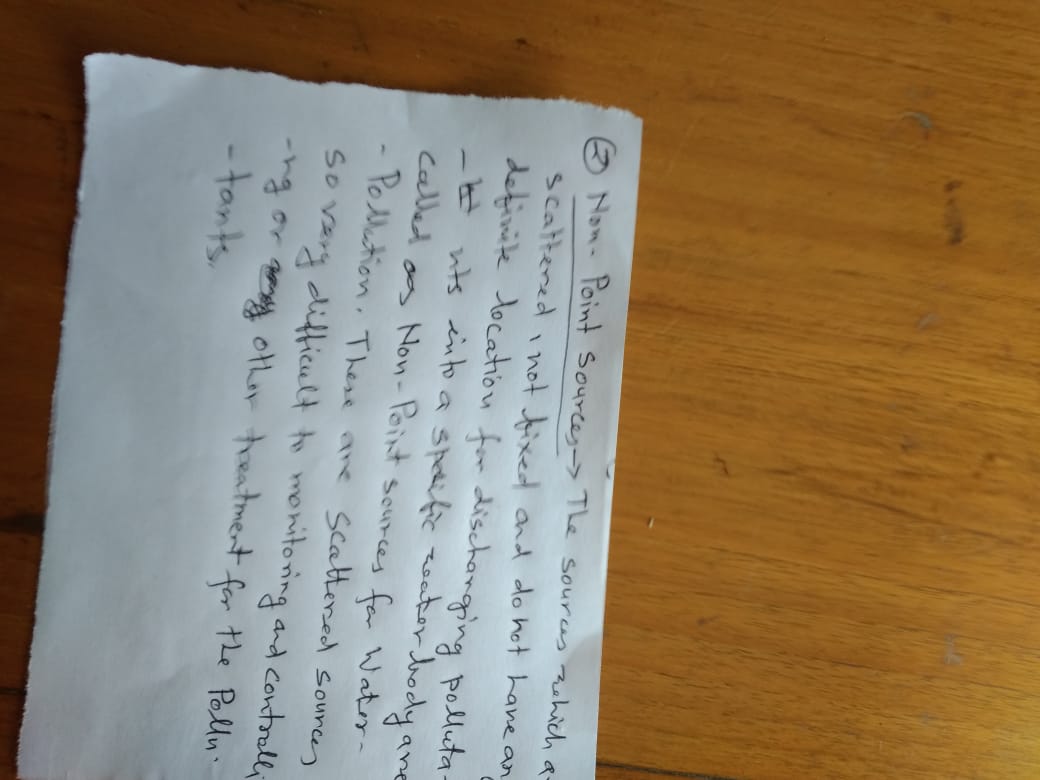 ② Non-Point Sources → The sources which a-
scattered, not fixed and do not have an
definite location for discharging polluta-
-nts into a specific water body are
called as Non-Point sources for Water-
-Pollution. These are Scattered sources
so very difficult to monitoring and controlli
-ng or other treatment for the Pollu-
-tants.